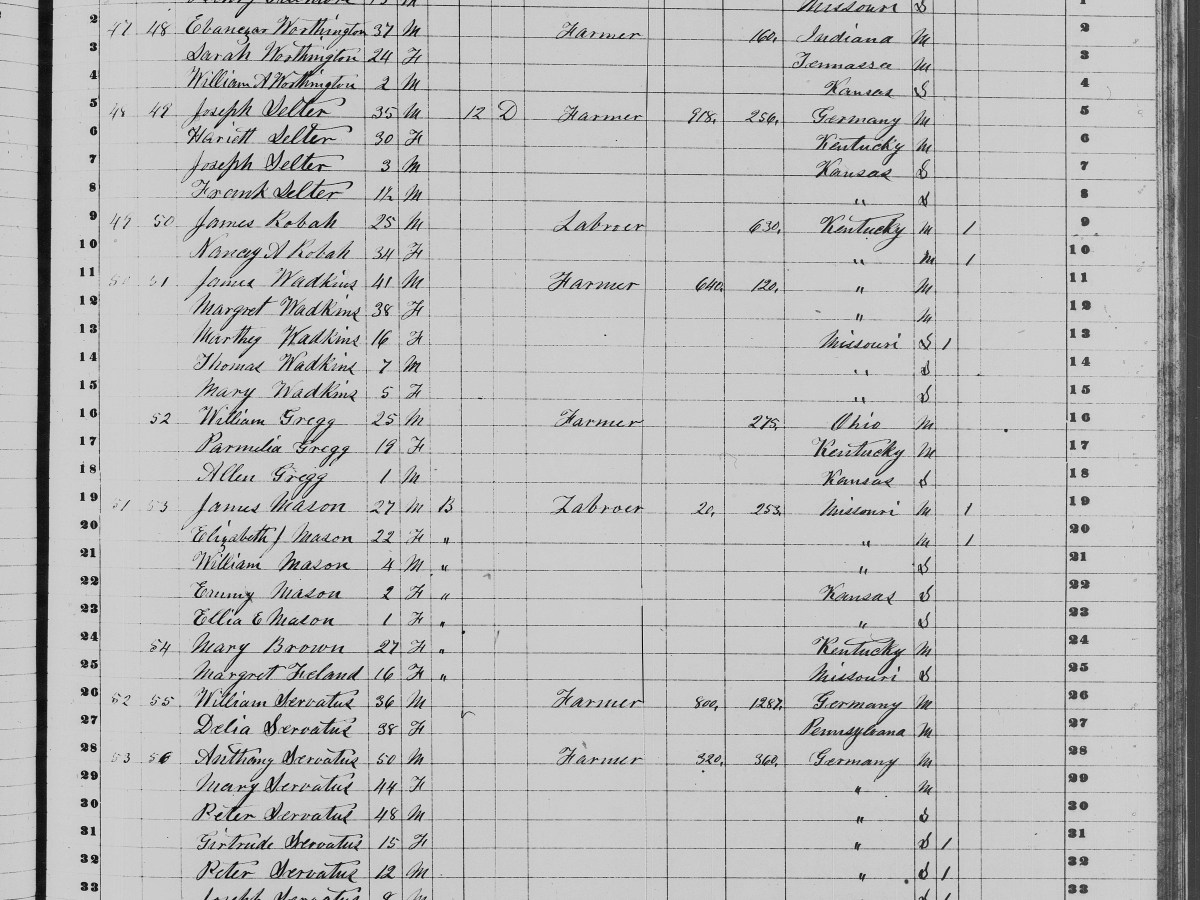 Missouri S 1
2 47 48 Ebanezar Worthington 37 M Farmer 160, Indiana M 2
3 Sarah Worthington 24 F Tennassa M 3
4 William A Worthington 2 M Kansas S 4
5 48 49 Joseph Selter 35 M 12 D Farmer 918, 256, Germany M 5
6 Hariett Selter 30 F Kentucky M 6
7 Joseph Selter 3 M Kansas S 7
8 Frank Selter 1½ M " S 8
9 49 50 James Robah 25 M Labroer 630, Kentucky M 1 9
10 Nancy A Robah 34 F " M 1 10
11 50 51 James Wadkins 41 M Farmer 640, 120, " M 11
12 Margret Wadkins 38 F " M 12
13 Marthey Wadkins 16 F Missouri S 1 13
14 Thomas Wadkins 7 M " S 14
15 Mary Wadkins 5 F " S 15
16 52 William Gregg 25 M Farmer 275, Ohio M 16
17 Parmelia Gregg 19 F Kentucky M 17
18 Allen Gregg 1 M Kansas S 18
19 51 53 James Mason 27 M B Labroer 20, 253, Missouri M 1 19
20 Elizabeth J Mason 22 F " " M 1 20
21 William Mason 4 M " " S 21
22 Emmy Mason 2 F " Kansas S 22
23 Ellia E Mason 1 F " " S 23
24 54 Mary Brown 27 F " Kentucky M 24
25 Margret Ireland 16 F " Missouri S 25
26 52 55 William Servatus 36 M Farmer 800, 1287, Germany M 26
27 Delia Servatus 38 F Pennsylvana M 27
28 53 56 Anthany Servatus 50 M Farmer 320, 360, Germany M 28
29 Mary Servatus 44 F " M 29
30 Peter Servatus 48 M " S 30
31 Girtrude Servatus 15 F " S 1 31
32 Peter Servatus 12 M " S 1 32
33 Joseph Servatus M S 1 33